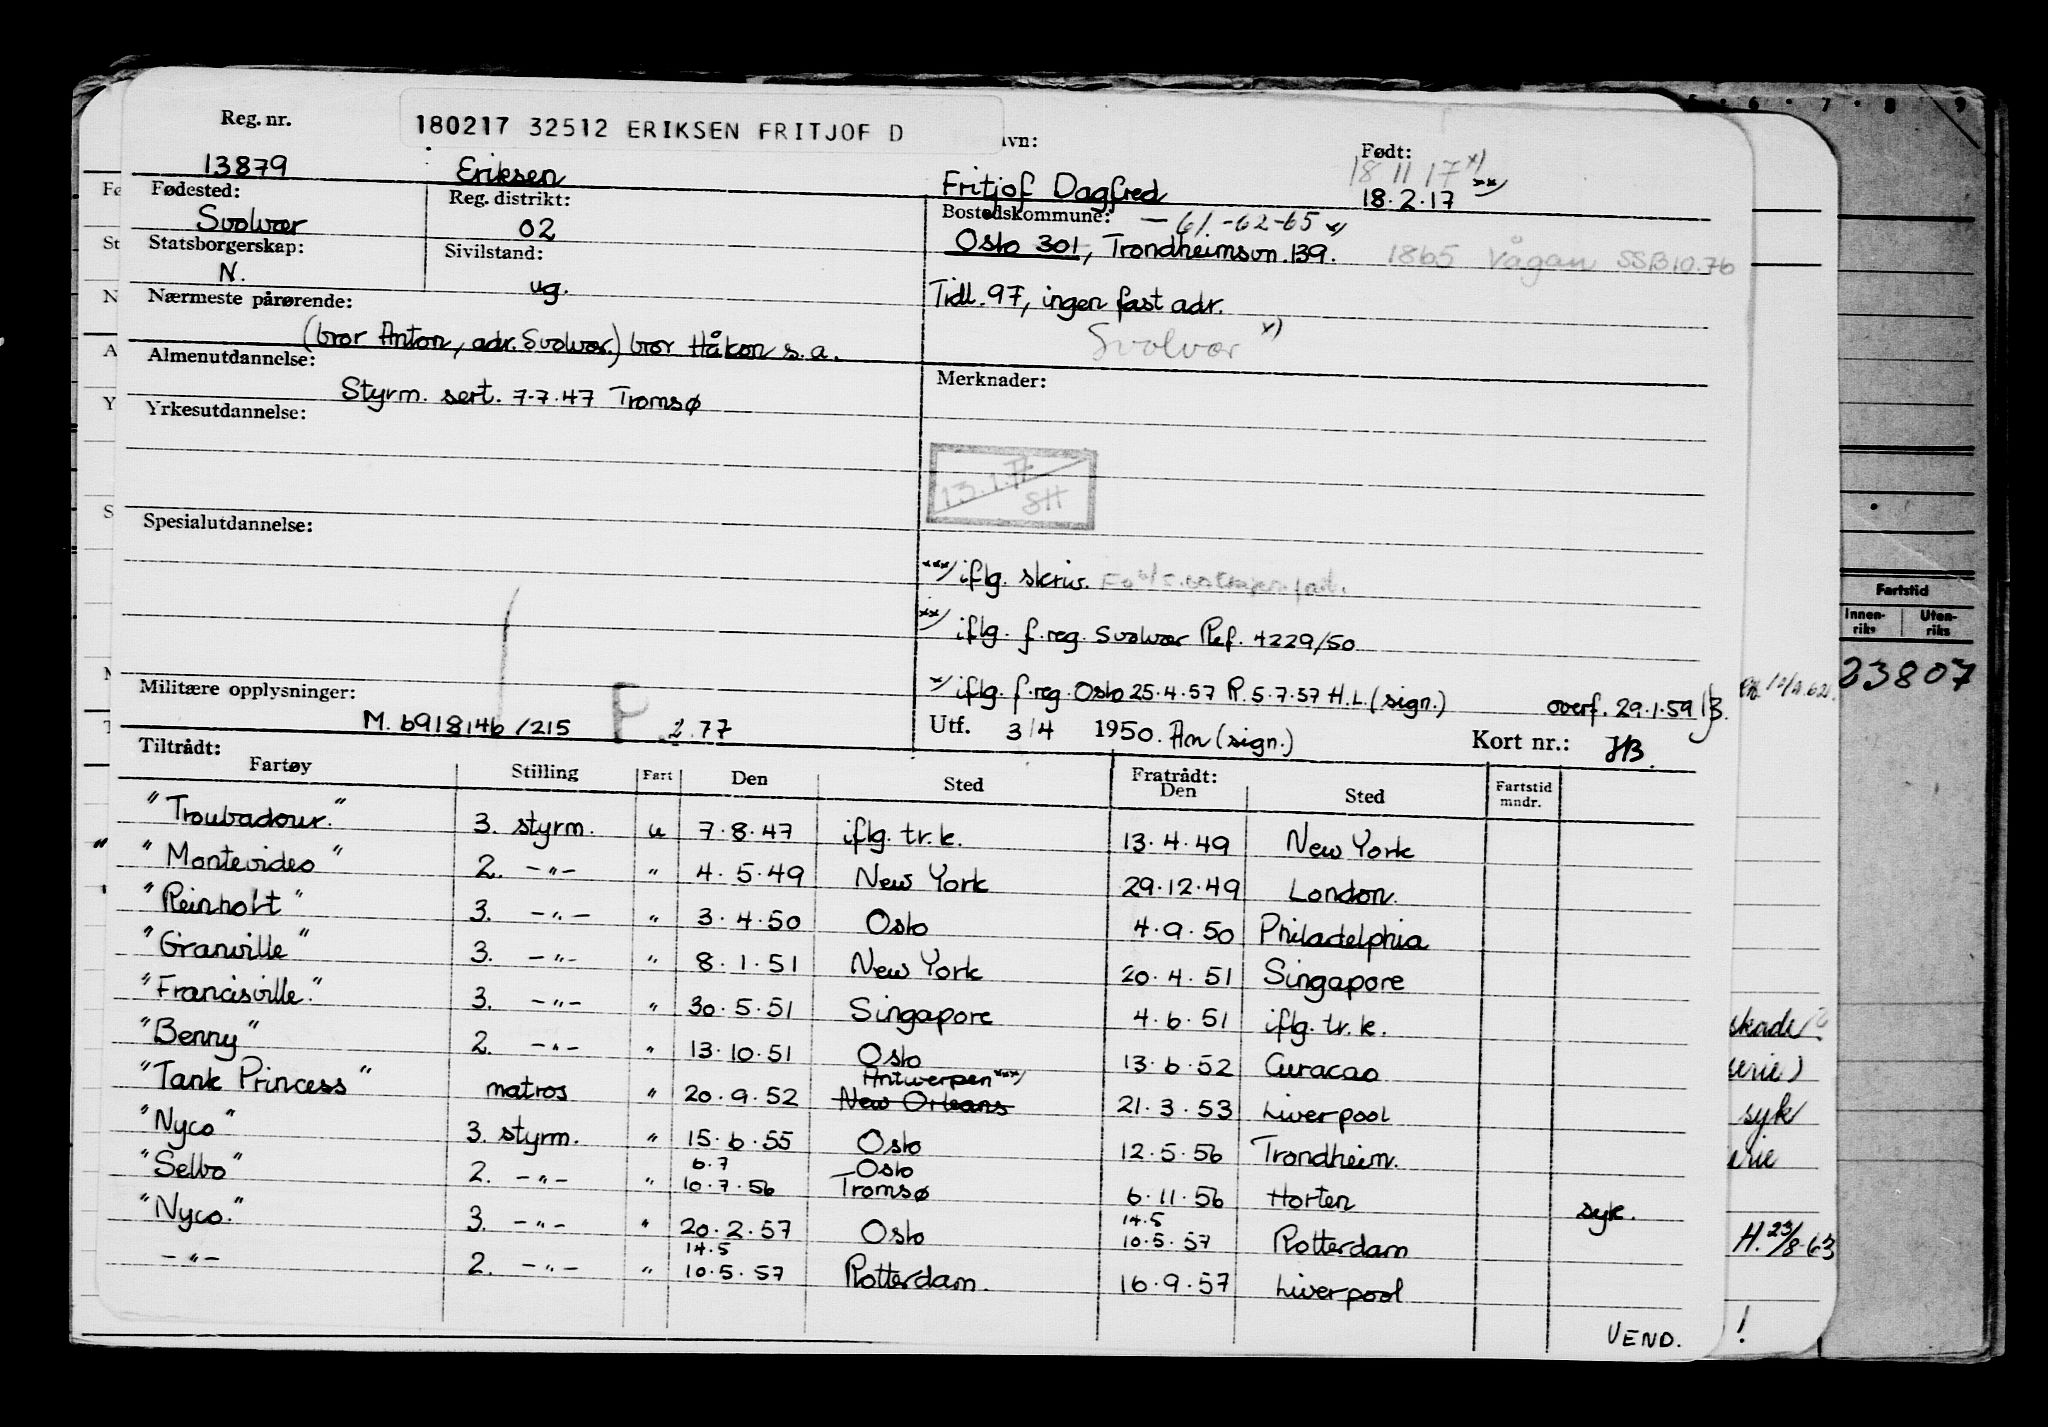 Reg. nr.
180217 32512 ERIKSEN FRITJOF D
vn:
Født:
18 11 17 x)
13879 Eriksen Fritjof Dagfred 18.2.17 xx)
Fødested: Reg. distrikt: Bostedskommune: - 61. -62-65 x)
Svolvær 02 Oslo 301, Trondheimsvn. 139. 1865 Vågan SSB 10.76
Statsborgerskap: Sivilstand:
N. ug. Tidl. 97, ingen fast adr.
Nærmeste pårørende:
(bror Anton, adr. Svolvær.) bror Håkon s. a. Svolvær x)
Almenutdannelse: Merknader:
Styrm. sert. 7.7.47 Tromsø
Yrkesutdannelse:
SH
Spesialutdannelse:
xxx) iflg. skriv.
xx) iflg. f.reg. Svolvær Ref. 4229/50
x) iflg. f.reg. Oslo 25.4.57 R. 5.7.57 H.L (sign.) overf. 29.1.59
Militære opplysninger:
M. 6918146/215 P 2.77 Utf. 3/4 1950. An (sign.) Kort nr.: JB.
Tiltrådt: Fratrådt:
Fartøy Stilling Fart Den Sted Den Sted Fartstid mndr.
"Troubadour." 3. styrm. u 7.8.47 iflg. tr. k. 13.4.49 New York
"Montevideo" 2. -"- " 4.5.49 New York 29.12.49 London.
"Reinholt" 3. -"- " 3.4.50 Oslo 4.9.50 Philadelphia
"Granville" 3. -"- " 8.1.51 New York 20.4.51 Singapore
"Francisville." 3. -"- " 30.5.51 Singapore 4.6.51 iflg. tr. k.
"Benny" 2. -"- " 13.10.51 Oslo 13.6.52 Curacao
Antwerpen xxx)
"Tank Princess" matros " 20.9.52 New Orleans 21.3.53 Liverpool
"Nyco" 3. styrm. " 15.6.55 Oslo 12.5.56 Trondheim.
6.7 Oslo
"Selbo" 2. -"- " 10.7.56 Tromsø 6.11.56 Horten syk.
14.5
"Nyco." 3. -"- " 20.2.57 Oslo 10.5.57 Rotterdam
14.5
-"- 2. -"- " 10.5.57 Rotterdam. 16.9.57 Liverpool
VEND.
6 7 8 9
Fartstid
Innenriks Utenriks
23807
skade
syk
H. 23/8-63
!